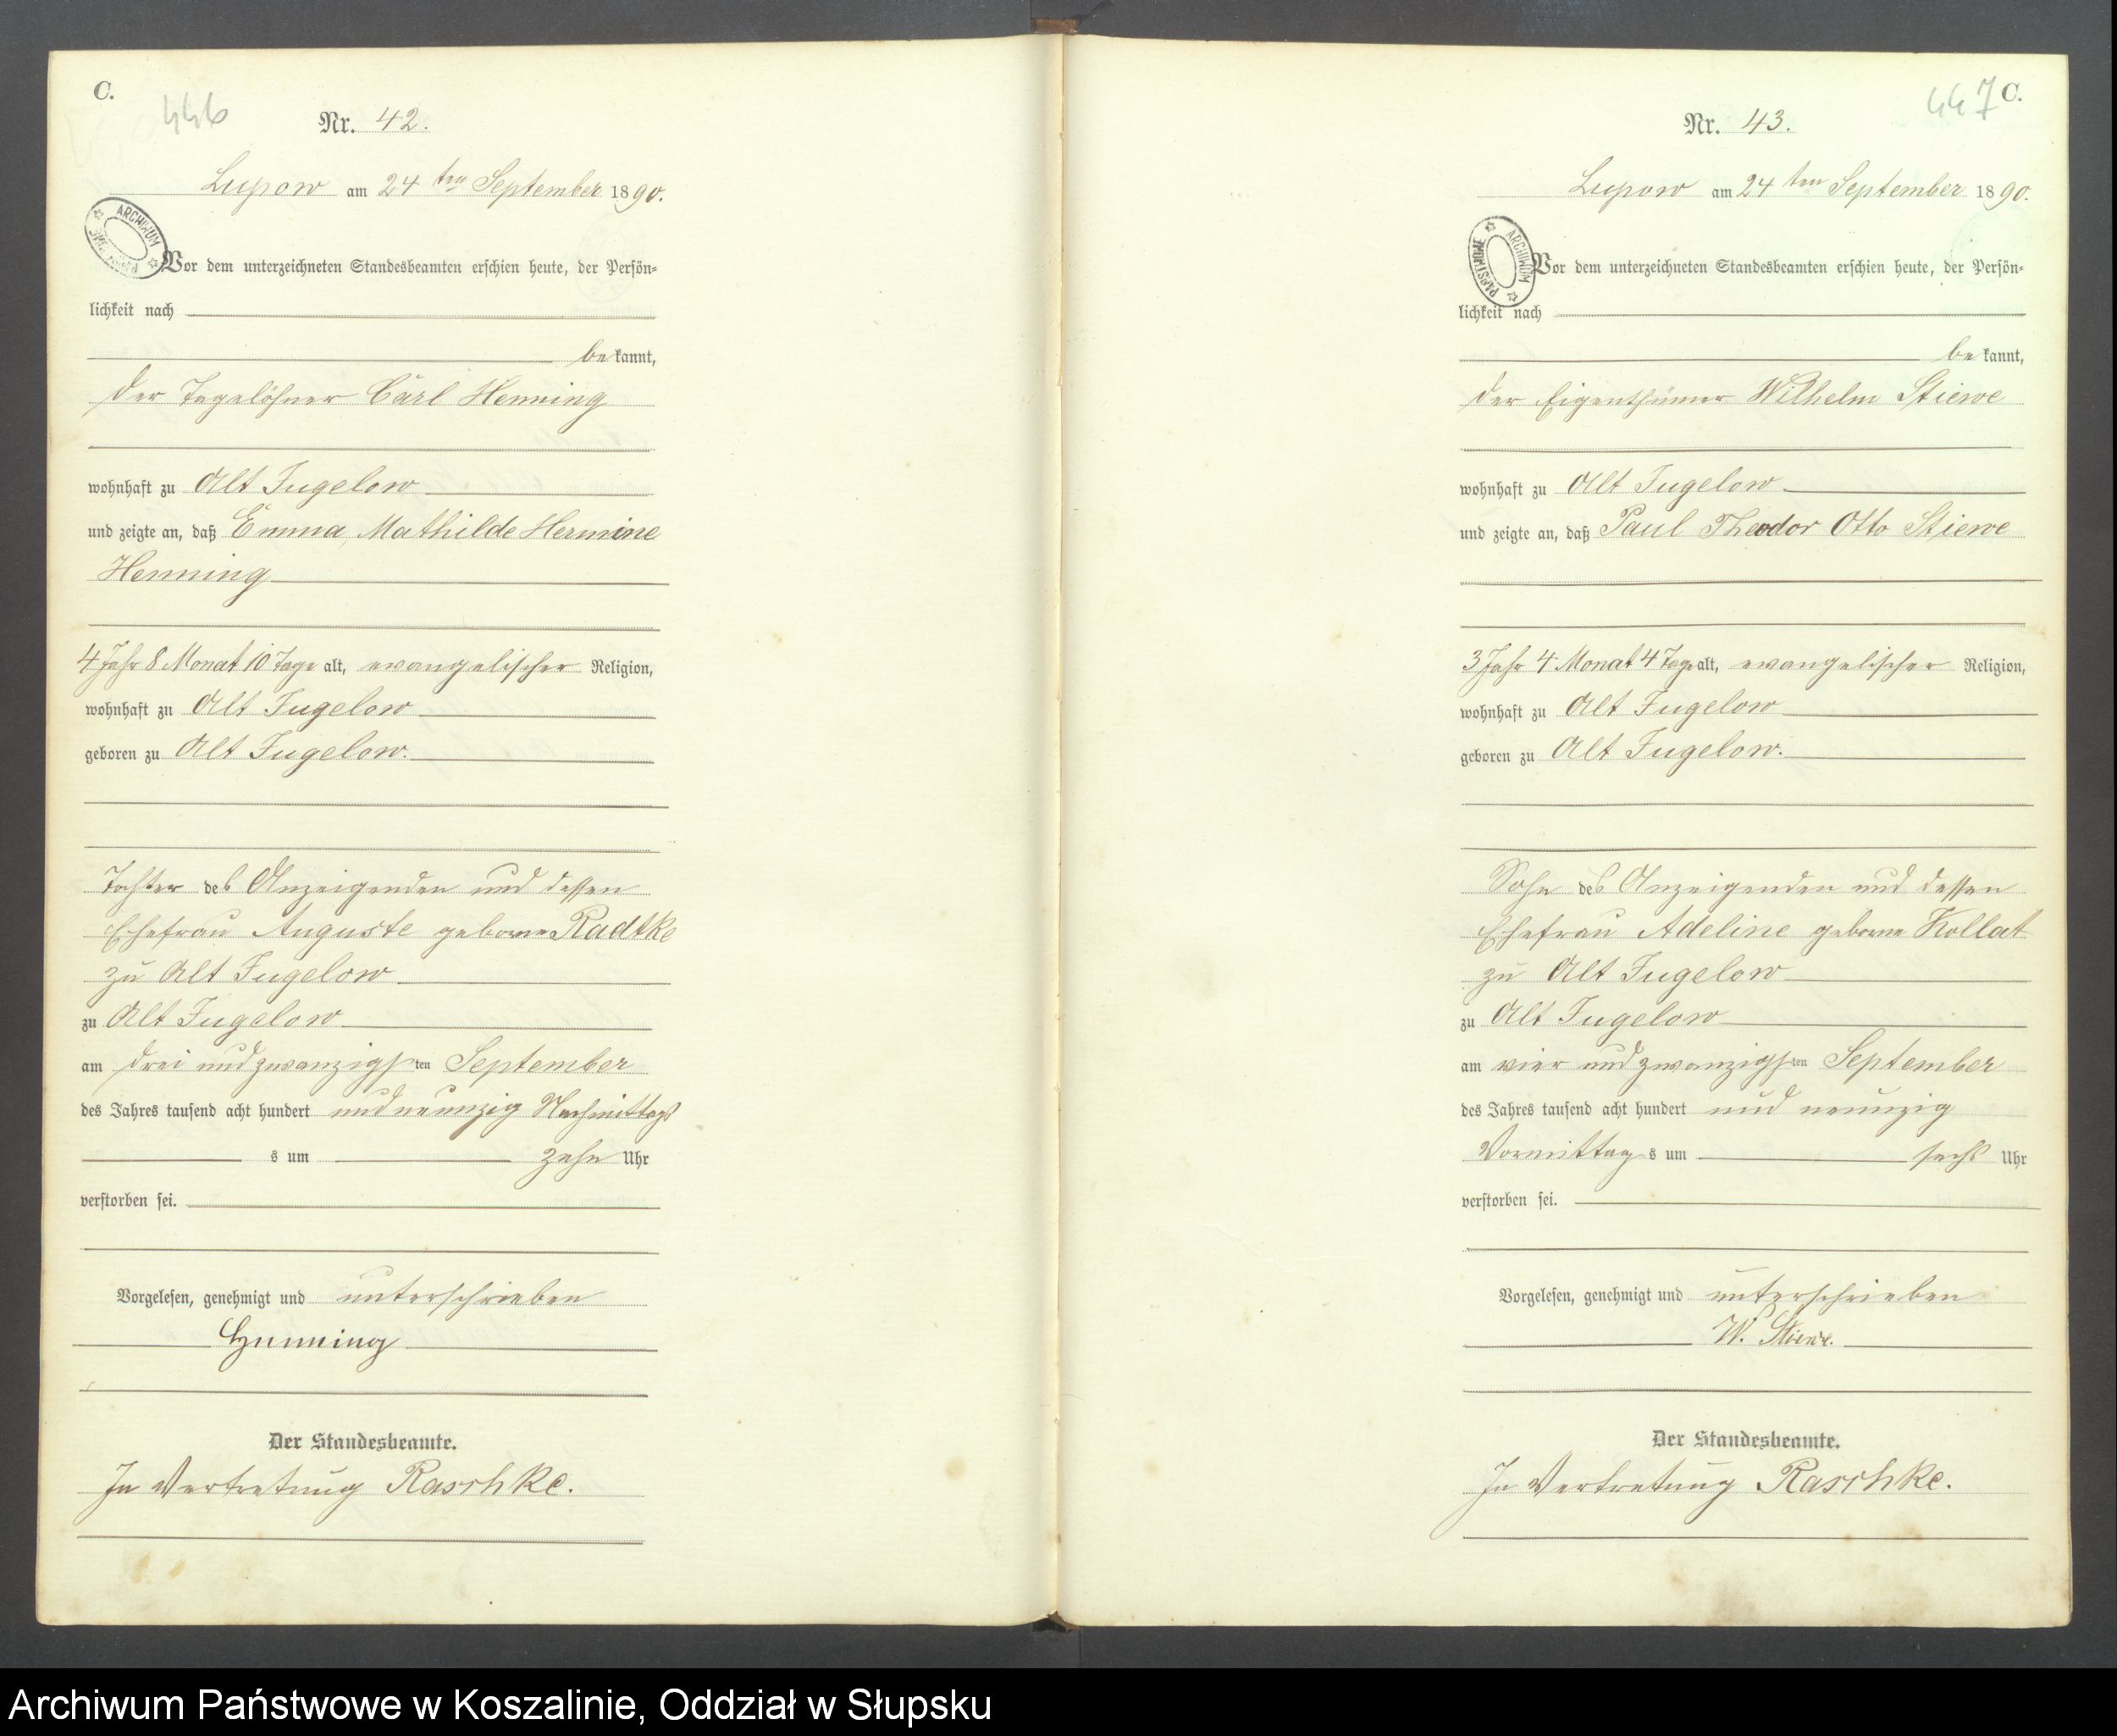 C.
446
Nr. 42.
Lupow am 24 ten September 1890.
ARCHIWUM
Vor dem unterzeichneten Standesbeamten erschien heute, der Persön-
lichkeit nach
bekannt,
der Tagelöhner Carl Henning
wohnhaft zu Alt Jugelow
und zeigte an, daß Emma Mathilde Hermine
Henning
4 Jahr 8 Monat 10 Tage alt, evangelischer Religion,
wohnhaft zu Alt Jugelow
geboren zu Alt Jugelow.
Tochter des Anzeigenden und dessen
Ehefrau Auguste geborne Radtke
zu Alt Jugelow
zu Alt Jugelow
am drei und zwanzigsten September
des Jahres tausend acht hundert und neunzig Nachmittags
s um zehn Uhr
verstorben sei.
Vorgelesen, genehmigt und unterschrieben
Henning
Der Standesbeamte.
In Vertretung Raschke.
447 C.
Nr. 43.
Lupow am 24 ten September 1890.
ARCHIWUM PAŃSTWOWE
Vor dem unterzeichneten Standesbeamten erschien heute, der Persön-
lichkeit nach
bekannt,
der Eigenthümer Wilhelm Stiewe
wohnhaft zu Alt Jugelow
und zeigte an, daß Paul Theodor Otto Stiewe
3 Jahr 4 Monat 4 Tage alt, evangelischer Religion,
wohnhaft zu Alt Jugelow
geboren zu Alt Jugelow.
Sohn des Anzeigenden und dessen
Ehefrau Adeline geborne Kollat
zu Alt Jugelow
zu Alt Jugelow
am vier und zwanzigsten September
des Jahres tausend acht hundert und neunzig
Vormittags um sechs Uhr
verstorben sei.
Vorgelesen, genehmigt und unterschrieben
W. Stiewe.
Der Standesbeamte.
In Vertretung Raschke.
Archiwum Państwowe w Koszalinie, Oddział w Słupsku